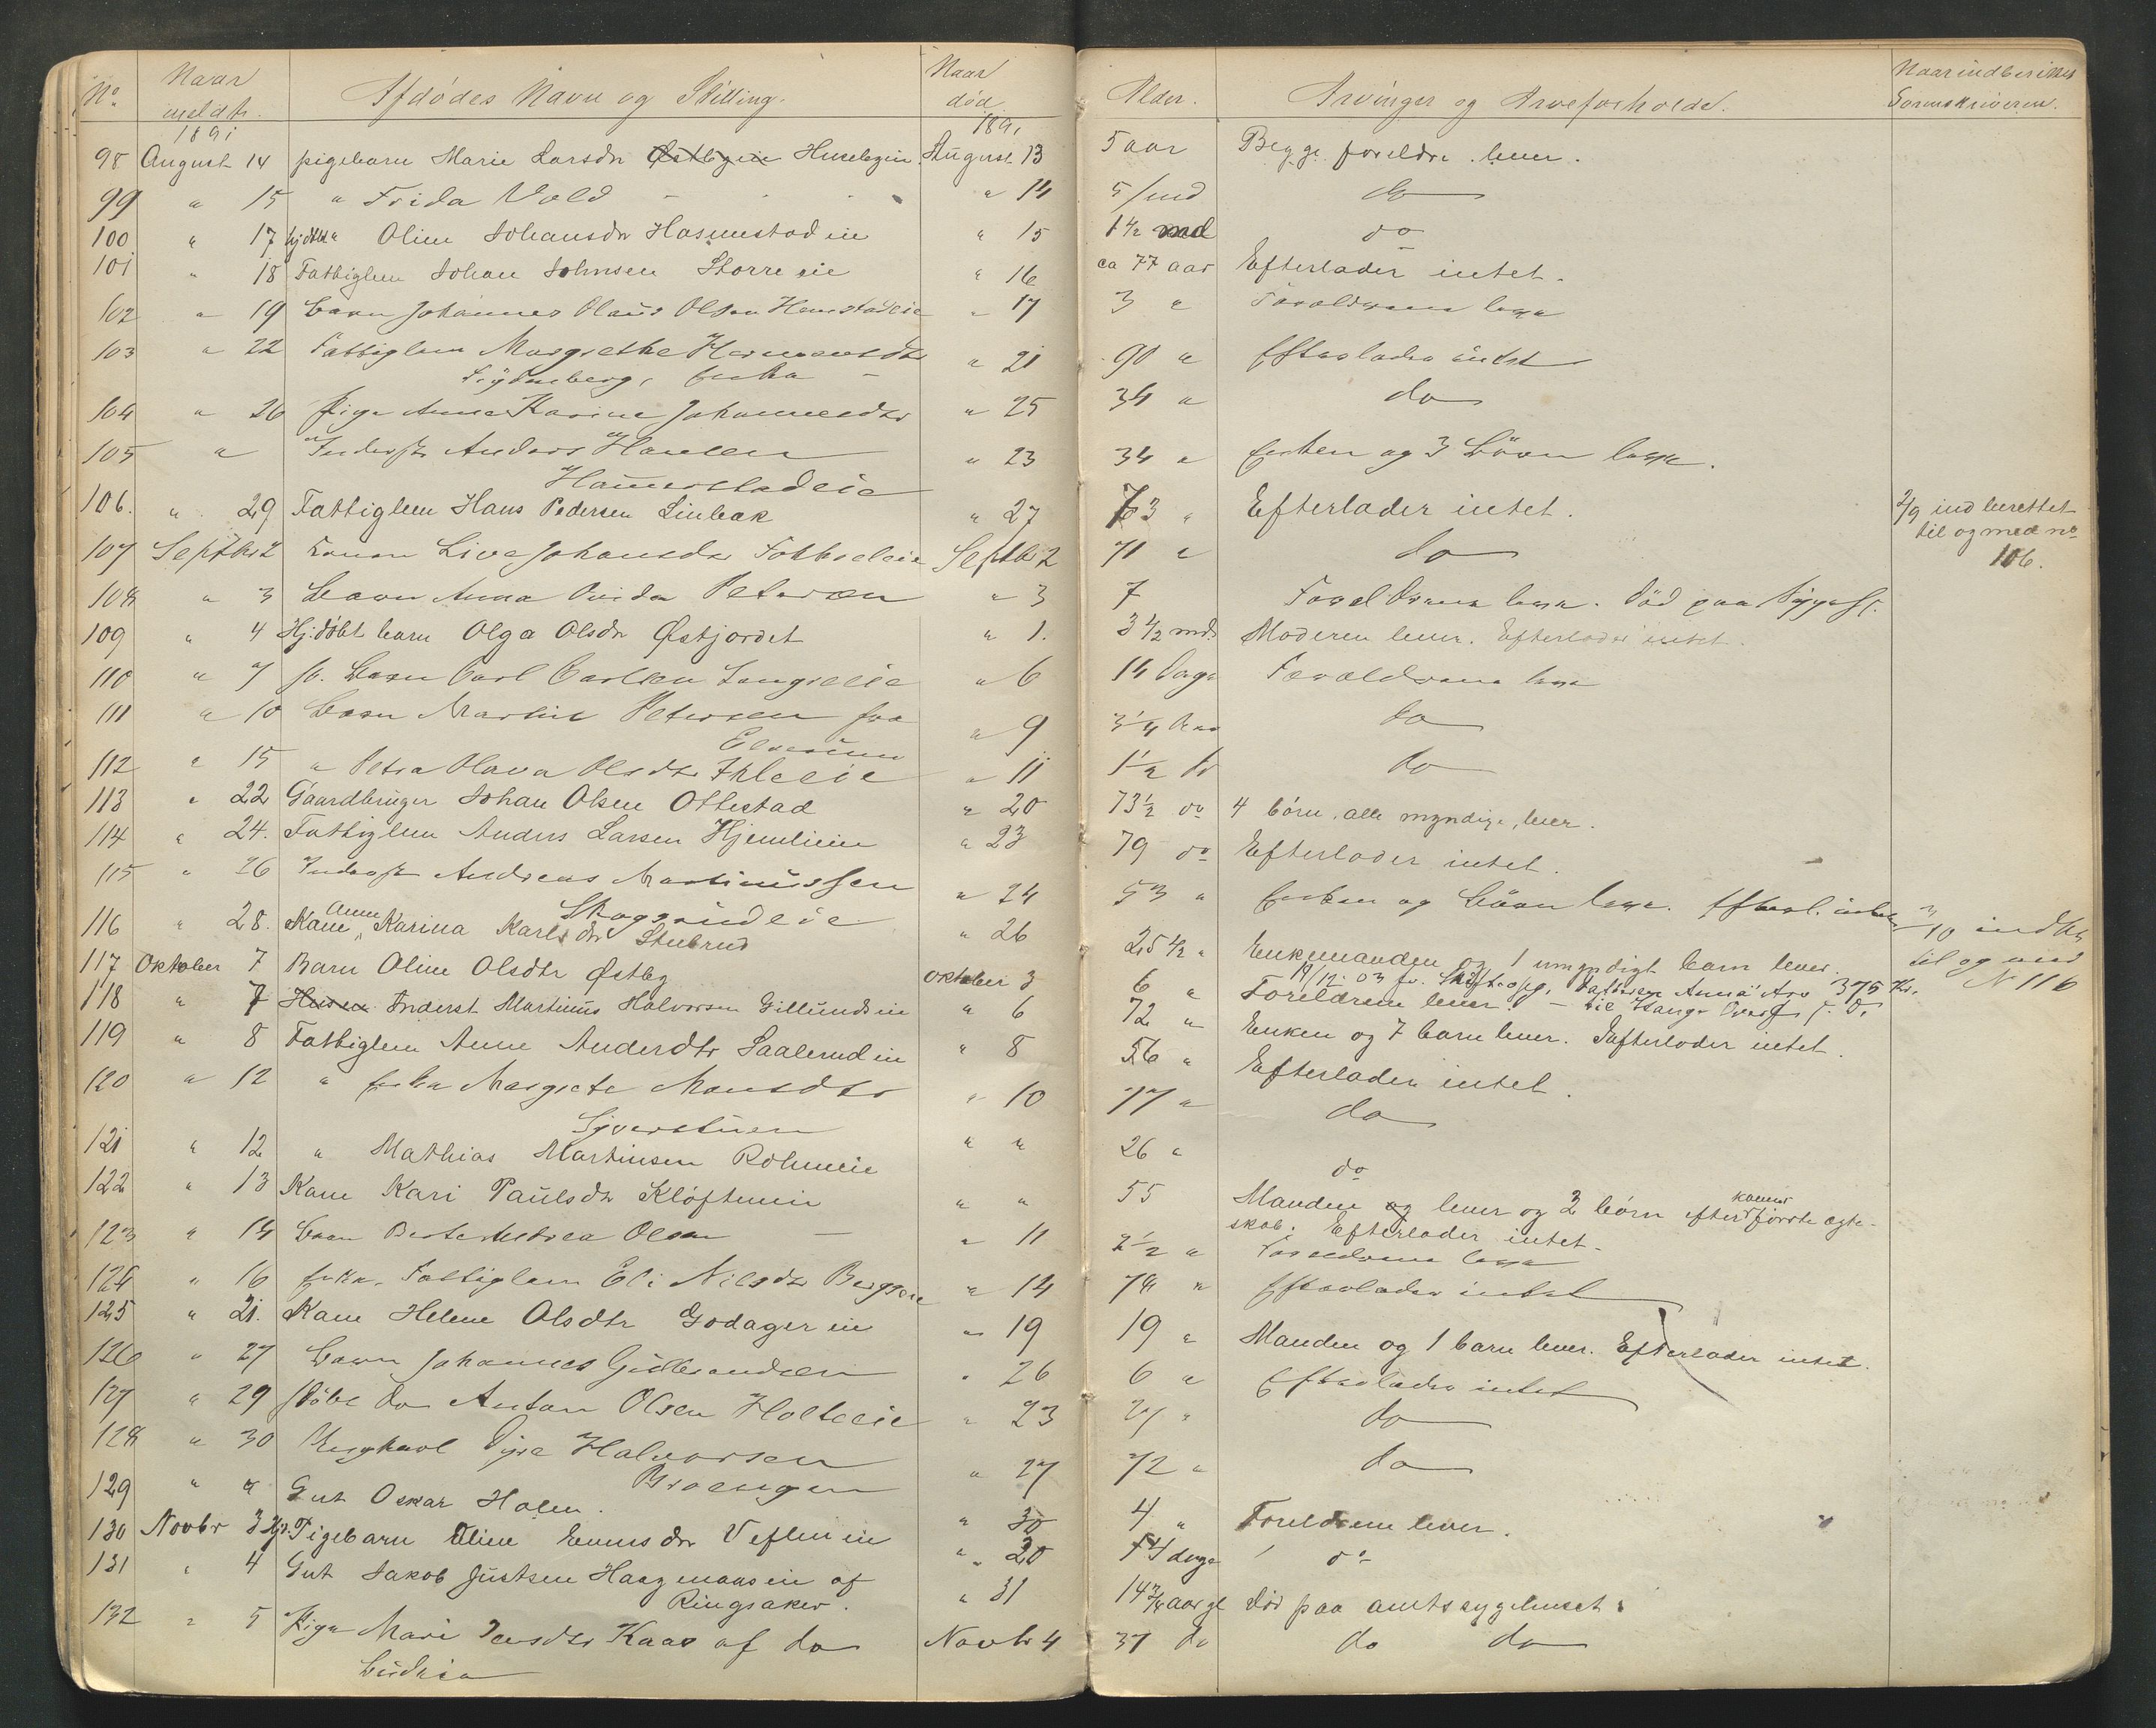 No. Naar meldt. Afdødes Navn og Stilling. Naar død. Alder. Arvinger og Arveforholde. Naar indberettet Sorenskriveren.
1891 1891
98 August 14 pigebarn Marie Larsdr Østbyeie Huusbyeie August 13 5 aar Begge foreldre lever.
99 " 15 " Frida Vold " 14 5/md do
100 " 17 hjdøbt " Oline Johansdr Hasmestadeie " 15 1 1/2 md do
101 " 18 Fattiglem Johan Johnsen Storreeie " 16 ca 77 aar Efterlader intet.
102 " 19 Barn Johannes Olaus Olsen " 17 3 " Forældrene leve
103 " 22 Fattiglem Margrethe " 21 90 " Efterlader intet
Enke
104 " 26 Pige Anne Karine Johannesdtr " 25 34 " do
105 " Inderst Anders Hansen " 23 34 " Enken og 3 Børn leve.
Hammerstadeie
106. " 29 Fattiglem Hans Pedersen Linbak " 27 73 " Efterlader intet. 2/9 indberettet
til og med no
106.
107 Septbr 2 Live Johansdr Septbr 2 71 " do
108 " 3 Barn Anna Petersen " 3 7 Forældrene leve. Død paa Sygeh.
109 " 4 Hj.døbt barn Olga Olsdr Østjordet " 1. 3 1/2 md. Moderen lever. Efterlader intet.
110 " 7 Barn Carl Carlsen " 6 14 Dage Forældrene leve
111 " 10 Barn Martin Petersen fra " 9 3 1/4 Aar do
Elverum
112 " 15 " Petra Olava Olsdtr Ihleeie " 11 1 1/2 do do
113 " 22 Gaardbruger Johan Olsen Ottestad " 20 73 1/2 do 4 børn, alle myndige, lever.
114 " 24. Fattiglem Anders Larsen Hjemlieie " 23 79 do Efterlader intet.
115 " 26 Inderst Andreas Martinussen " 24 53 " Enken og Børn leve. Efterl. intet
Skogrudeie
116 " 28. Kone Anne Karina Karlsdr Stubrud " 26 25 1/2 " Enkemanden og 1 umyndigt barn lever. 3/10 indb.
til og med
N 116
117 Oktober 7 Barn Oline Olsdtr Østby Oktober 3 6 " Foreldrene lever.
118 " 7 Inderst Martinus Halvorsen Gillundeie " 6 72 " Enken og 7 barn lever. Efterlader intet.
119 " 8 Fattiglem Anne Andersdtr Saalerudeie " 8 56 " Efterlader intet.
120 " 12 " Enke Margrete Monsdtr " 10 77 " do
Syverstuen
121 " 12 " Mathias Martinsen " " 26 " do
122 " 13 Kone Kari Paulsdtr Kløfteneie " " 55 Manden lever og 2 børn efter konens første ægte-
skab. Efterlader intet.
123 " 14 Barn Olsen " 11 2 1/2 " Forældrene leve
124 " 16 Enke, Fattiglem Eli Nilsdtr " 14 78 " Efterlader intet
125 " 21. Kone Helene Olsdtr Godagereie " 19 19 " Manden og 1 barn lever. Efterlader intet.
126 " 27 Barn Johannes Gulbrandsen " 26 6 " Efterlader intet
127 " 29 do Anton Olsen Holteeie " 23 27 " do
128 " 30 Ungkarl Halvorsen " 27 72 " do
Braengen
129 " " Gut Oskar Holen. " 30 4 " Foreldrene lever.
130 Novbr 3 Hjd. Pigebarn Oline Evensdr Vefleneie " 20 14 dage do
131 " 4 Gut Jakob Justsen af " 31 14 3/4 aar gl død paa amtssygehuset.
Ringsaker.
132 " 5 Pige Mari Jensdtr Kaas af do Novbr 4 37 do do do
Budeia